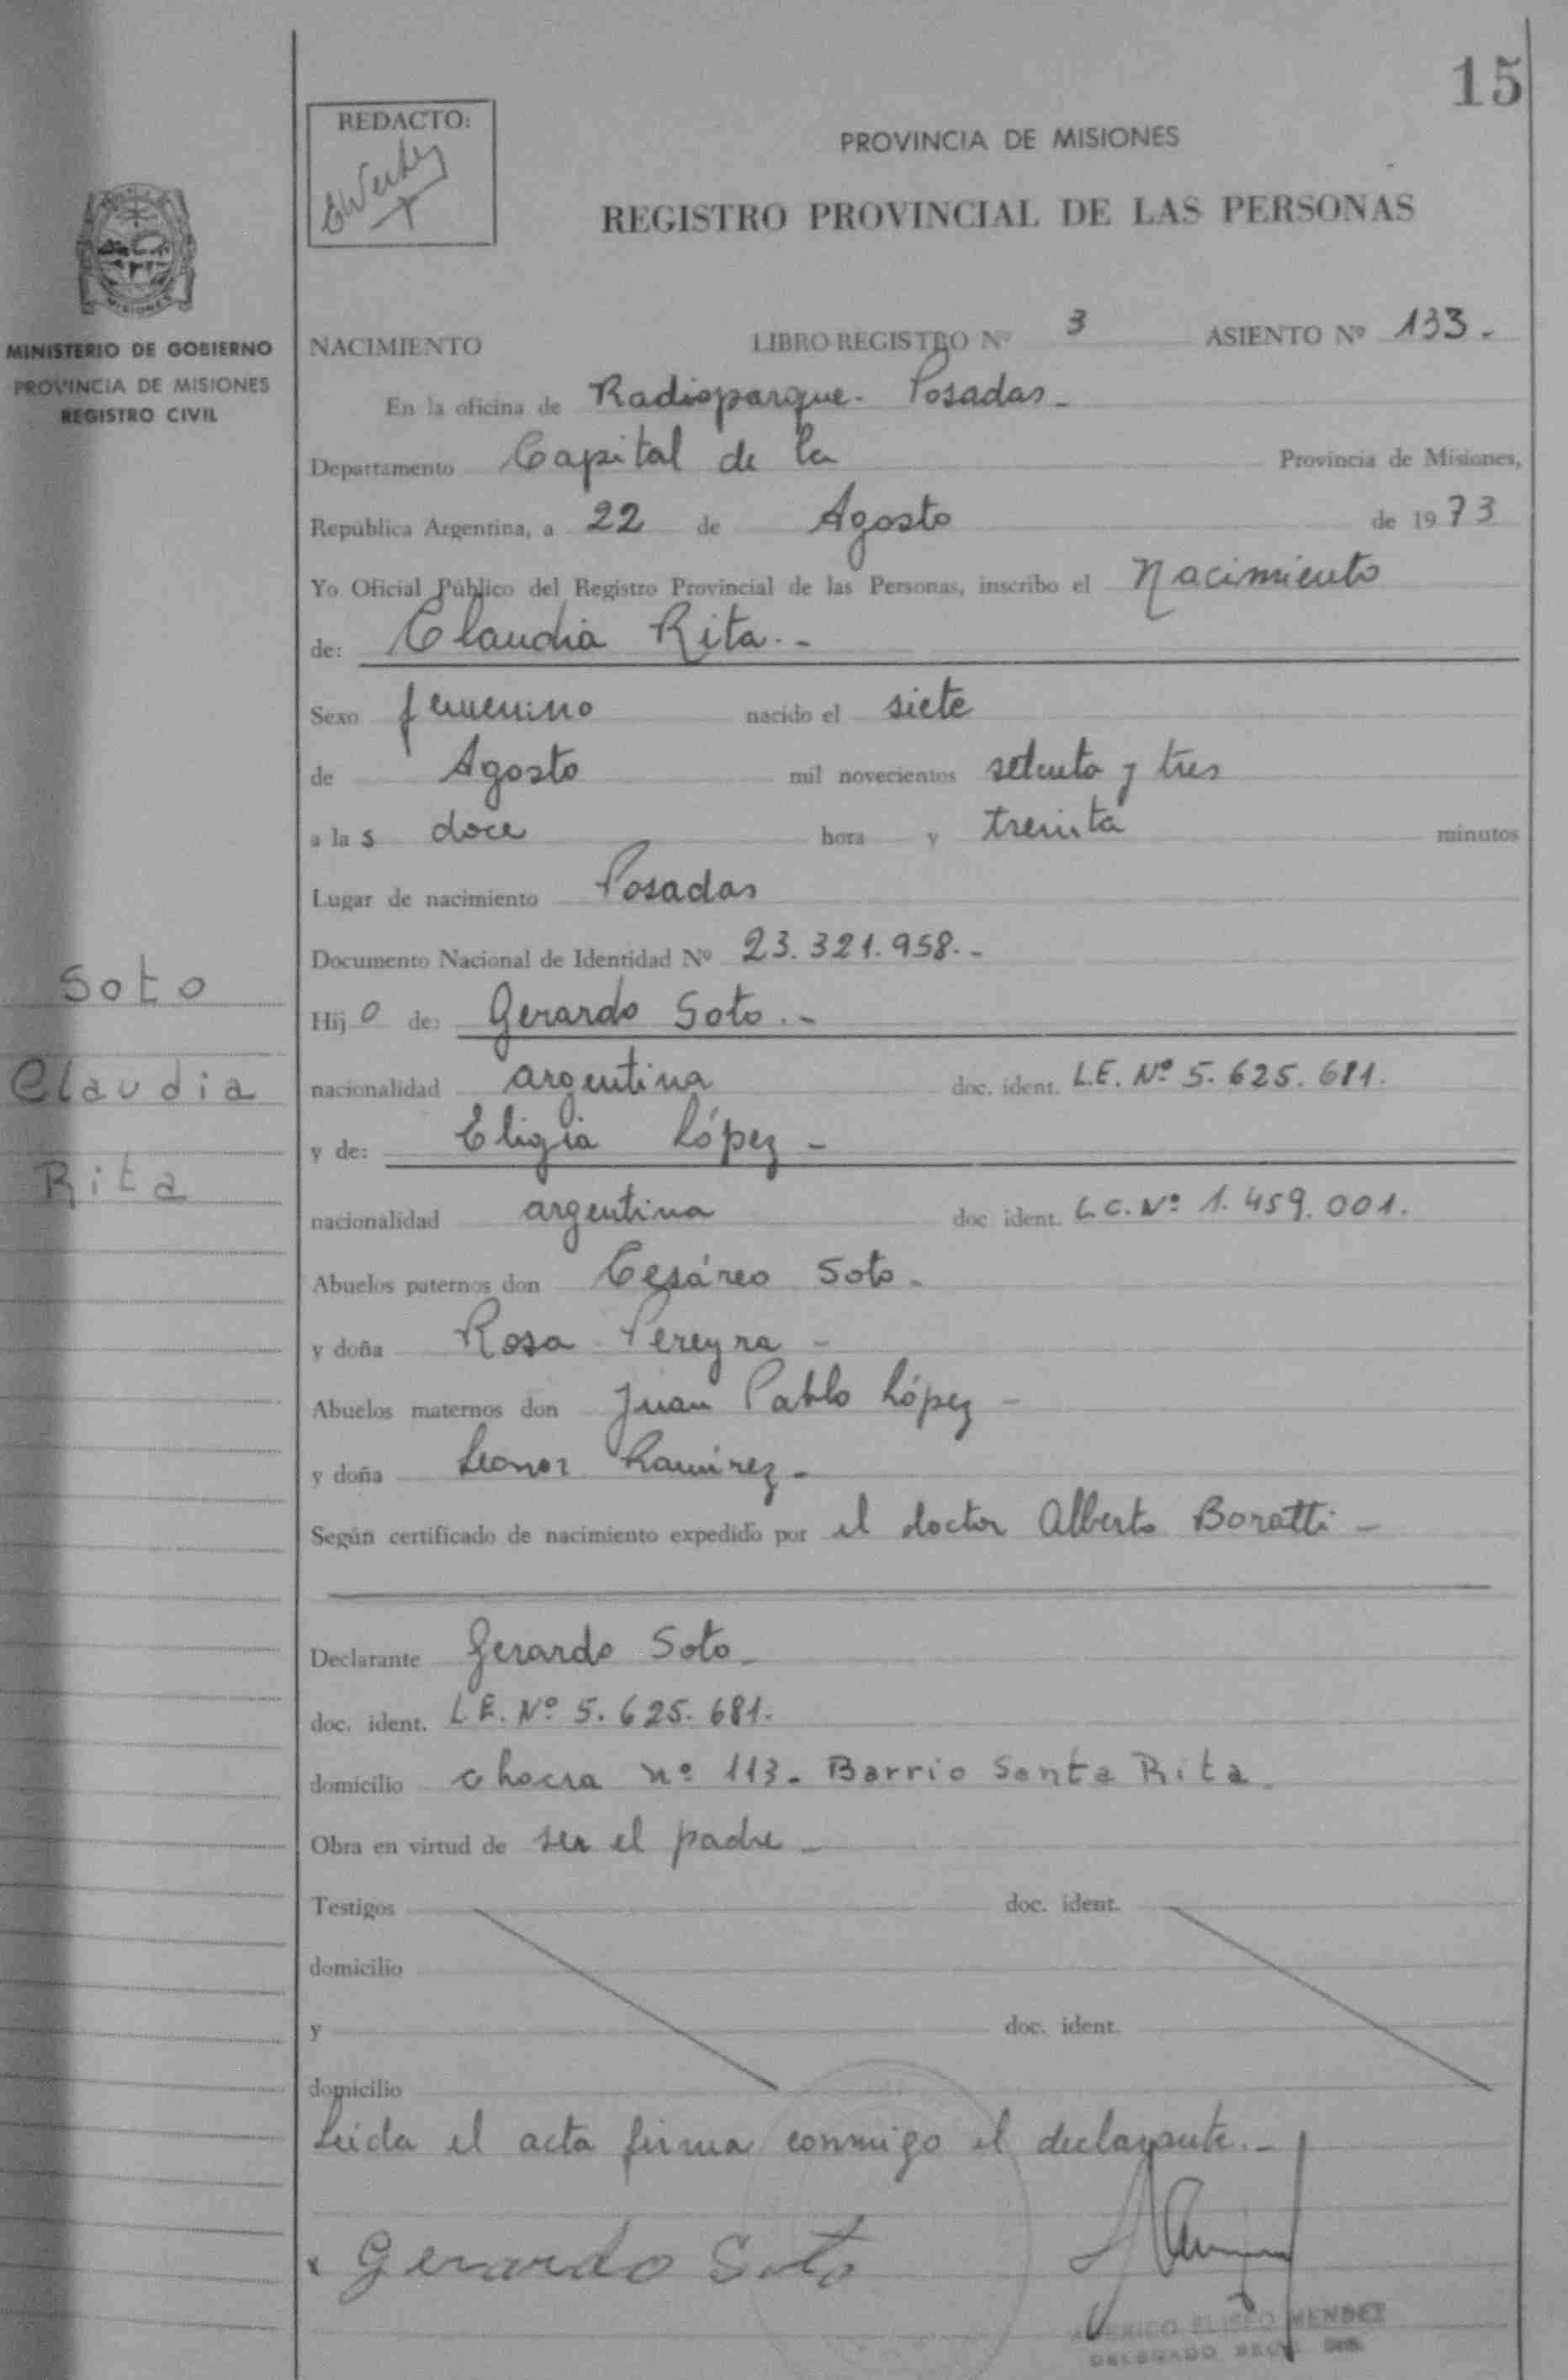 15
REDACTO:
PROVINCIA DE MISIONES
REGISTRO PROVINCIAL DE LAS PERSONAS
MISIONES
MINISTERIO DE GOBIERNO
PROVINCIA DE MISIONES
REGISTRO CIVIL
NACIMIENTO LIBRO REGISTRO Nº 3 ASIENTO Nº 133.-
En la oficina de Radioparque. Posadas-
Departamento Capital de la Provincia de Misiones,
República Argentina, a 22 de Agosto de 1973
Yo Oficial Público del Registro Provincial de las Personas, inscribo el Nacimiento
de: Claudia Rita.-
Sexo femenino nacido el siete
de Agosto mil novecientos setenta y tres
a las doce hora y treinta minutos
Lugar de nacimiento Posadas
Documento Nacional de Identidad Nº 23.321.958.-
Soto
Claudia
Rita
Hijo de: Gerardo Soto.-
nacionalidad argentina doc. ident. L.E. Nº 5.625.681.
y de: Eligia López-
nacionalidad argentina doc ident. L.C. Nº 1.459.001.
Abuelos paternos don Cesáreo Soto-
y doña Rosa Pereyra-
Abuelos maternos don Juan Pablo López-
y doña Leonor Ramírez-
Según certificado de nacimiento expedido por el doctor Alberto Boratti-
Declarante Gerardo Soto-
doc. ident. L.E. Nº 5.625.681.
domicilio chacra nº 113. Barrio Santa Rita.
Obra en virtud de ser el padre-
Testigos doc. ident.
domicilio
y doc. ident.
domicilio
Leida el acta firma conmigo el declarante.-
Gerardo Soto
AMERICO ELISEO MENDEZ
DELEGADO